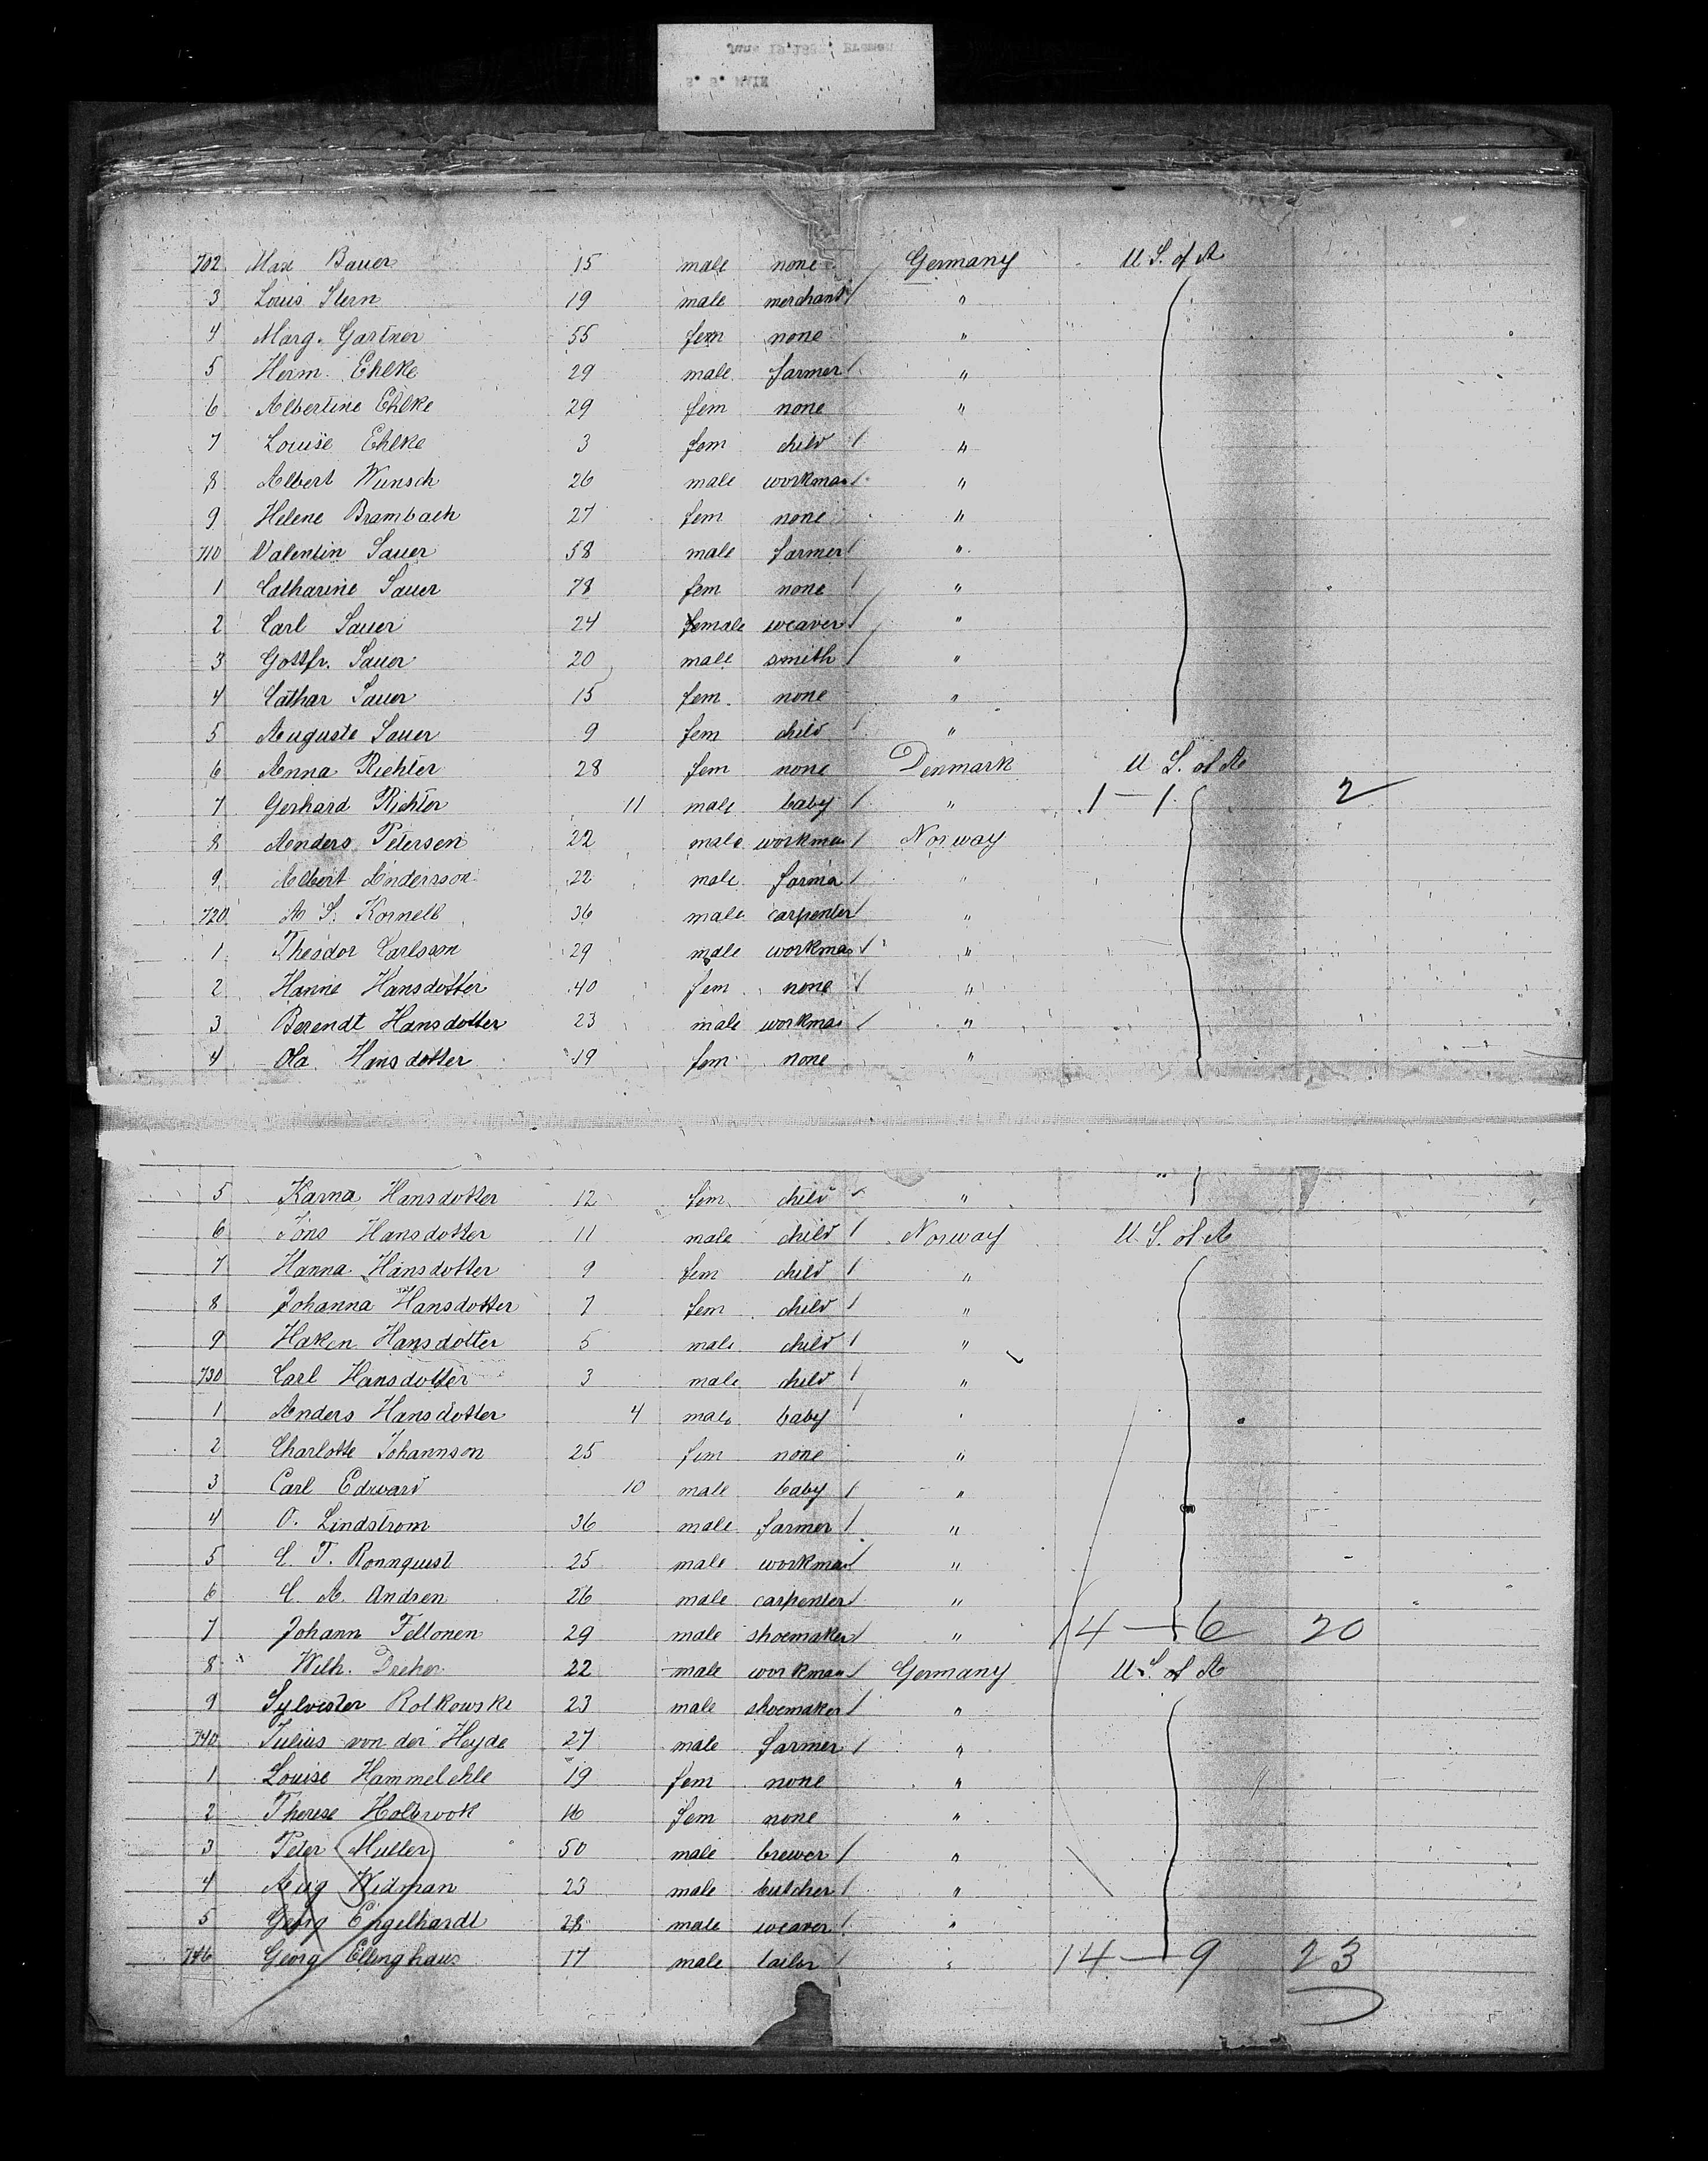 S. S. MAIN
702 Max Bauer 15 male none Germany U. S. of A
3 Louis Stern 19 male merchant / "
4 Marg. Gartner 55 fem none "
5 Herm. Ehlke 29 male farmer / "
6 Albertine Ehlke 29 fem none "
7 Louise Ehlke 3 fem child / "
8 Albert Wunsch 26 male workman / "
9 Helene Brambach 27 fem none "
710 Valentin Sauer 58 male farmer / "
1 Catharine Sauer 78 fem none / "
2 Carl Sauer 24 female weaver / "
3 Gottfr. Sauer 20 male smith / "
4 Cathar Sauer 15 fem. none "
5 Auguste Sauer 9 fem child / "
6 Anna Richter 28 fem none Denmark U S. of A
7 Gerhard Richter 11 male baby / " 1 — 1 2
8 Anders Petersen 22 male workman / Norway
9 Albert Andersson 22 male farmer / "
720 A S. Kornell 36 male carpenter / "
1 Theodor Carlsson 29 male workman / "
2 Hanne Hansdotter 40 fem none / "
3 Berendt Hansdotter 23 male workman / "
4 Ola Hansdotter 19 fem none "
5 Karna Hansdotter 12 fem child / "
6 Jöns Hansdotter 11 male child / Norway U. S. of A
7 Hanna Hansdotter 9 fem child / "
8 Johanna Hansdotter 7 fem child / "
9 Haken Hansdotter 5 male child / "
730 Carl Hansdotter 3 male child / "
1 Anders Hansdotter 4 male baby /
2 Charlotte Johannson 25 fem none "
3 Carl Edward 10 male baby / "
4 O. Lindstrom 36 male farmer / "
5 C. T. Ronnquist 25 male workman / "
6 C. A. Andren 26 male carpenter / "
7 Johann Tellonen 29 male shoemaker / " 14 — 6 20
8 Wilh. Dreher 22 male workman / Germany U. S. of A
9 Sylvester Rolkowski 23 male shoemaker / "
740 Julius von der Heyde 27 male farmer / "
1 Louise Hammelehle 19 fem none "
2 Therese Holbrook 16 fem none "
3 Peter Muller 50 male brewer / "
4 Aug Widman 23 male butcher / "
5 Georg Engelhardt 28 male weaver / "
746 Georg Ellinghaus 17 male tailor / " 14 — 9 23